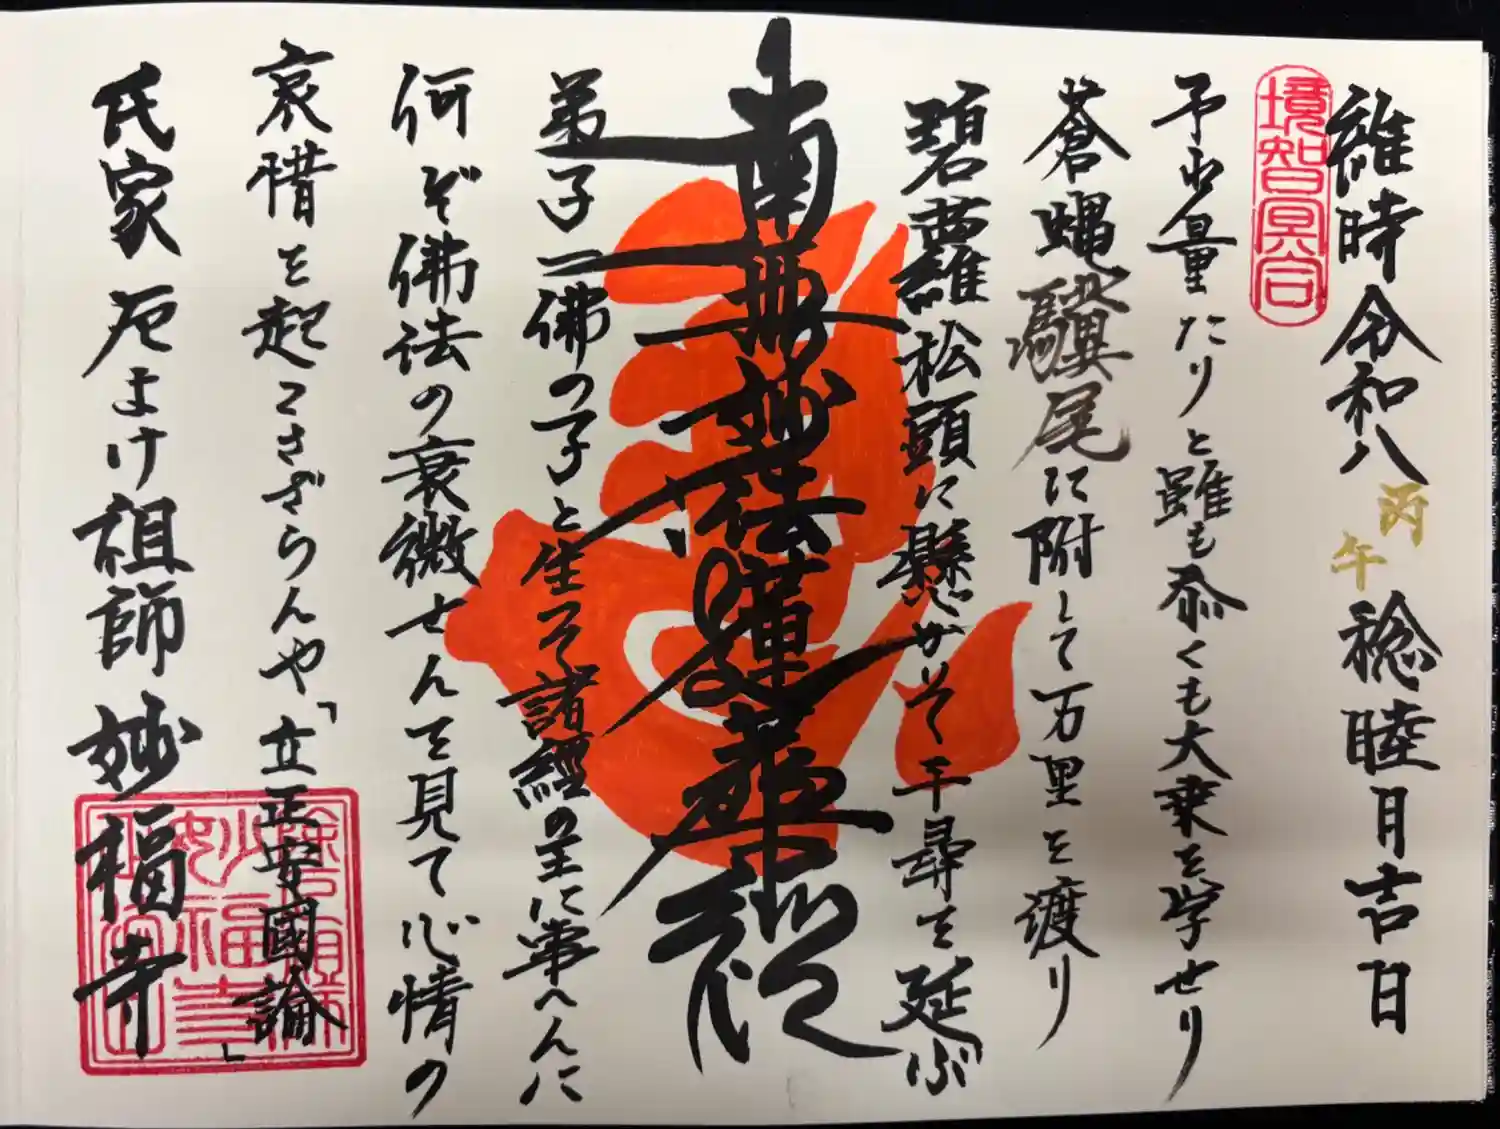 維時令和八丙午稔睦月吉日
境智冥合
予少量たりと雖も忝くも大乗を学せり
蒼蝿驥尾に附して万里を渡り
碧蘿松頭に懸かって千尋を延ぶ
南無妙法蓮華経
弟子一佛の子と生れて諸經の王に事へんに
何ぞ佛法の衰微せんを見て心情の
哀惜を起こさざらんや「立正安國論」
氏家厄よけ祖師妙福寺